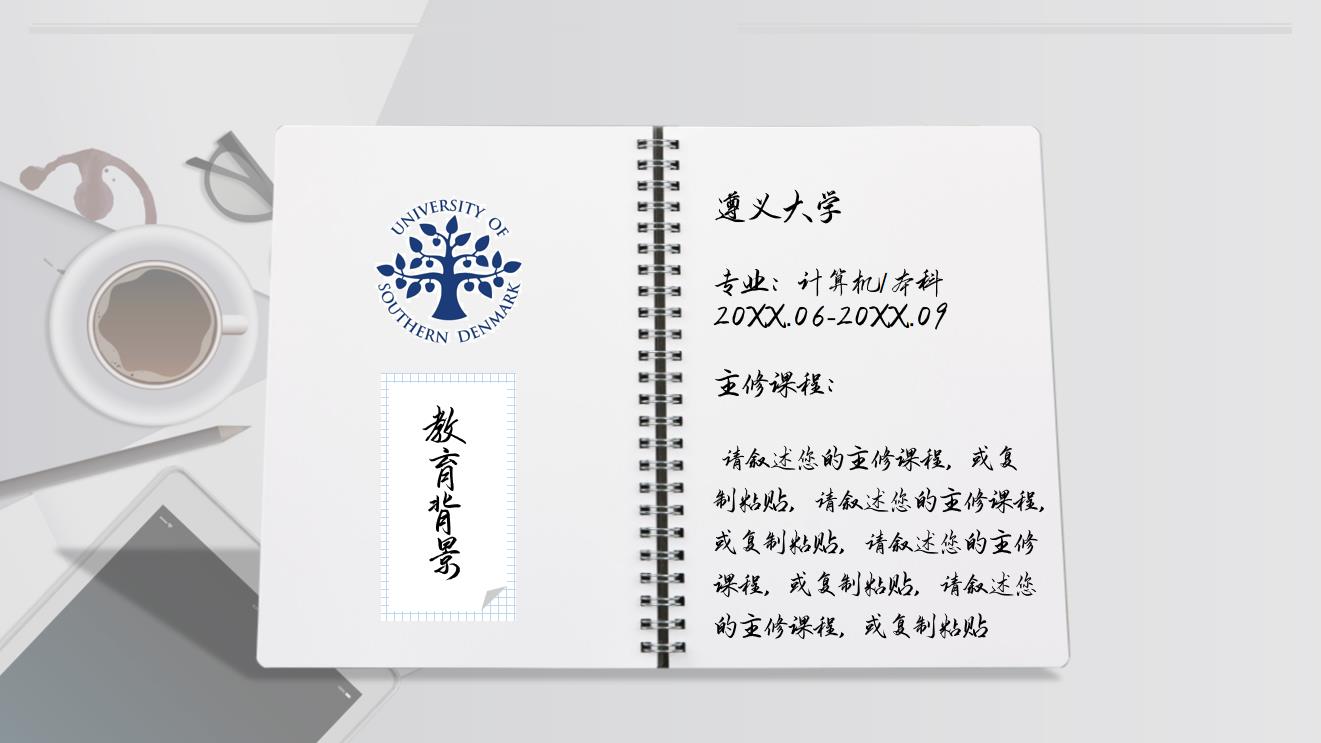 UNIVERSITY OF
SOUTHERN DENMARK
教育背景
遵义大学
专业：计算机/本科
20XX.06-20XX.09
主修课程：
请叙述您的主修课程，或复
制粘贴，请叙述您的主修课程，
或复制粘贴，请叙述您的主修
课程，或复制粘贴，请叙述您
的主修课程，或复制粘贴